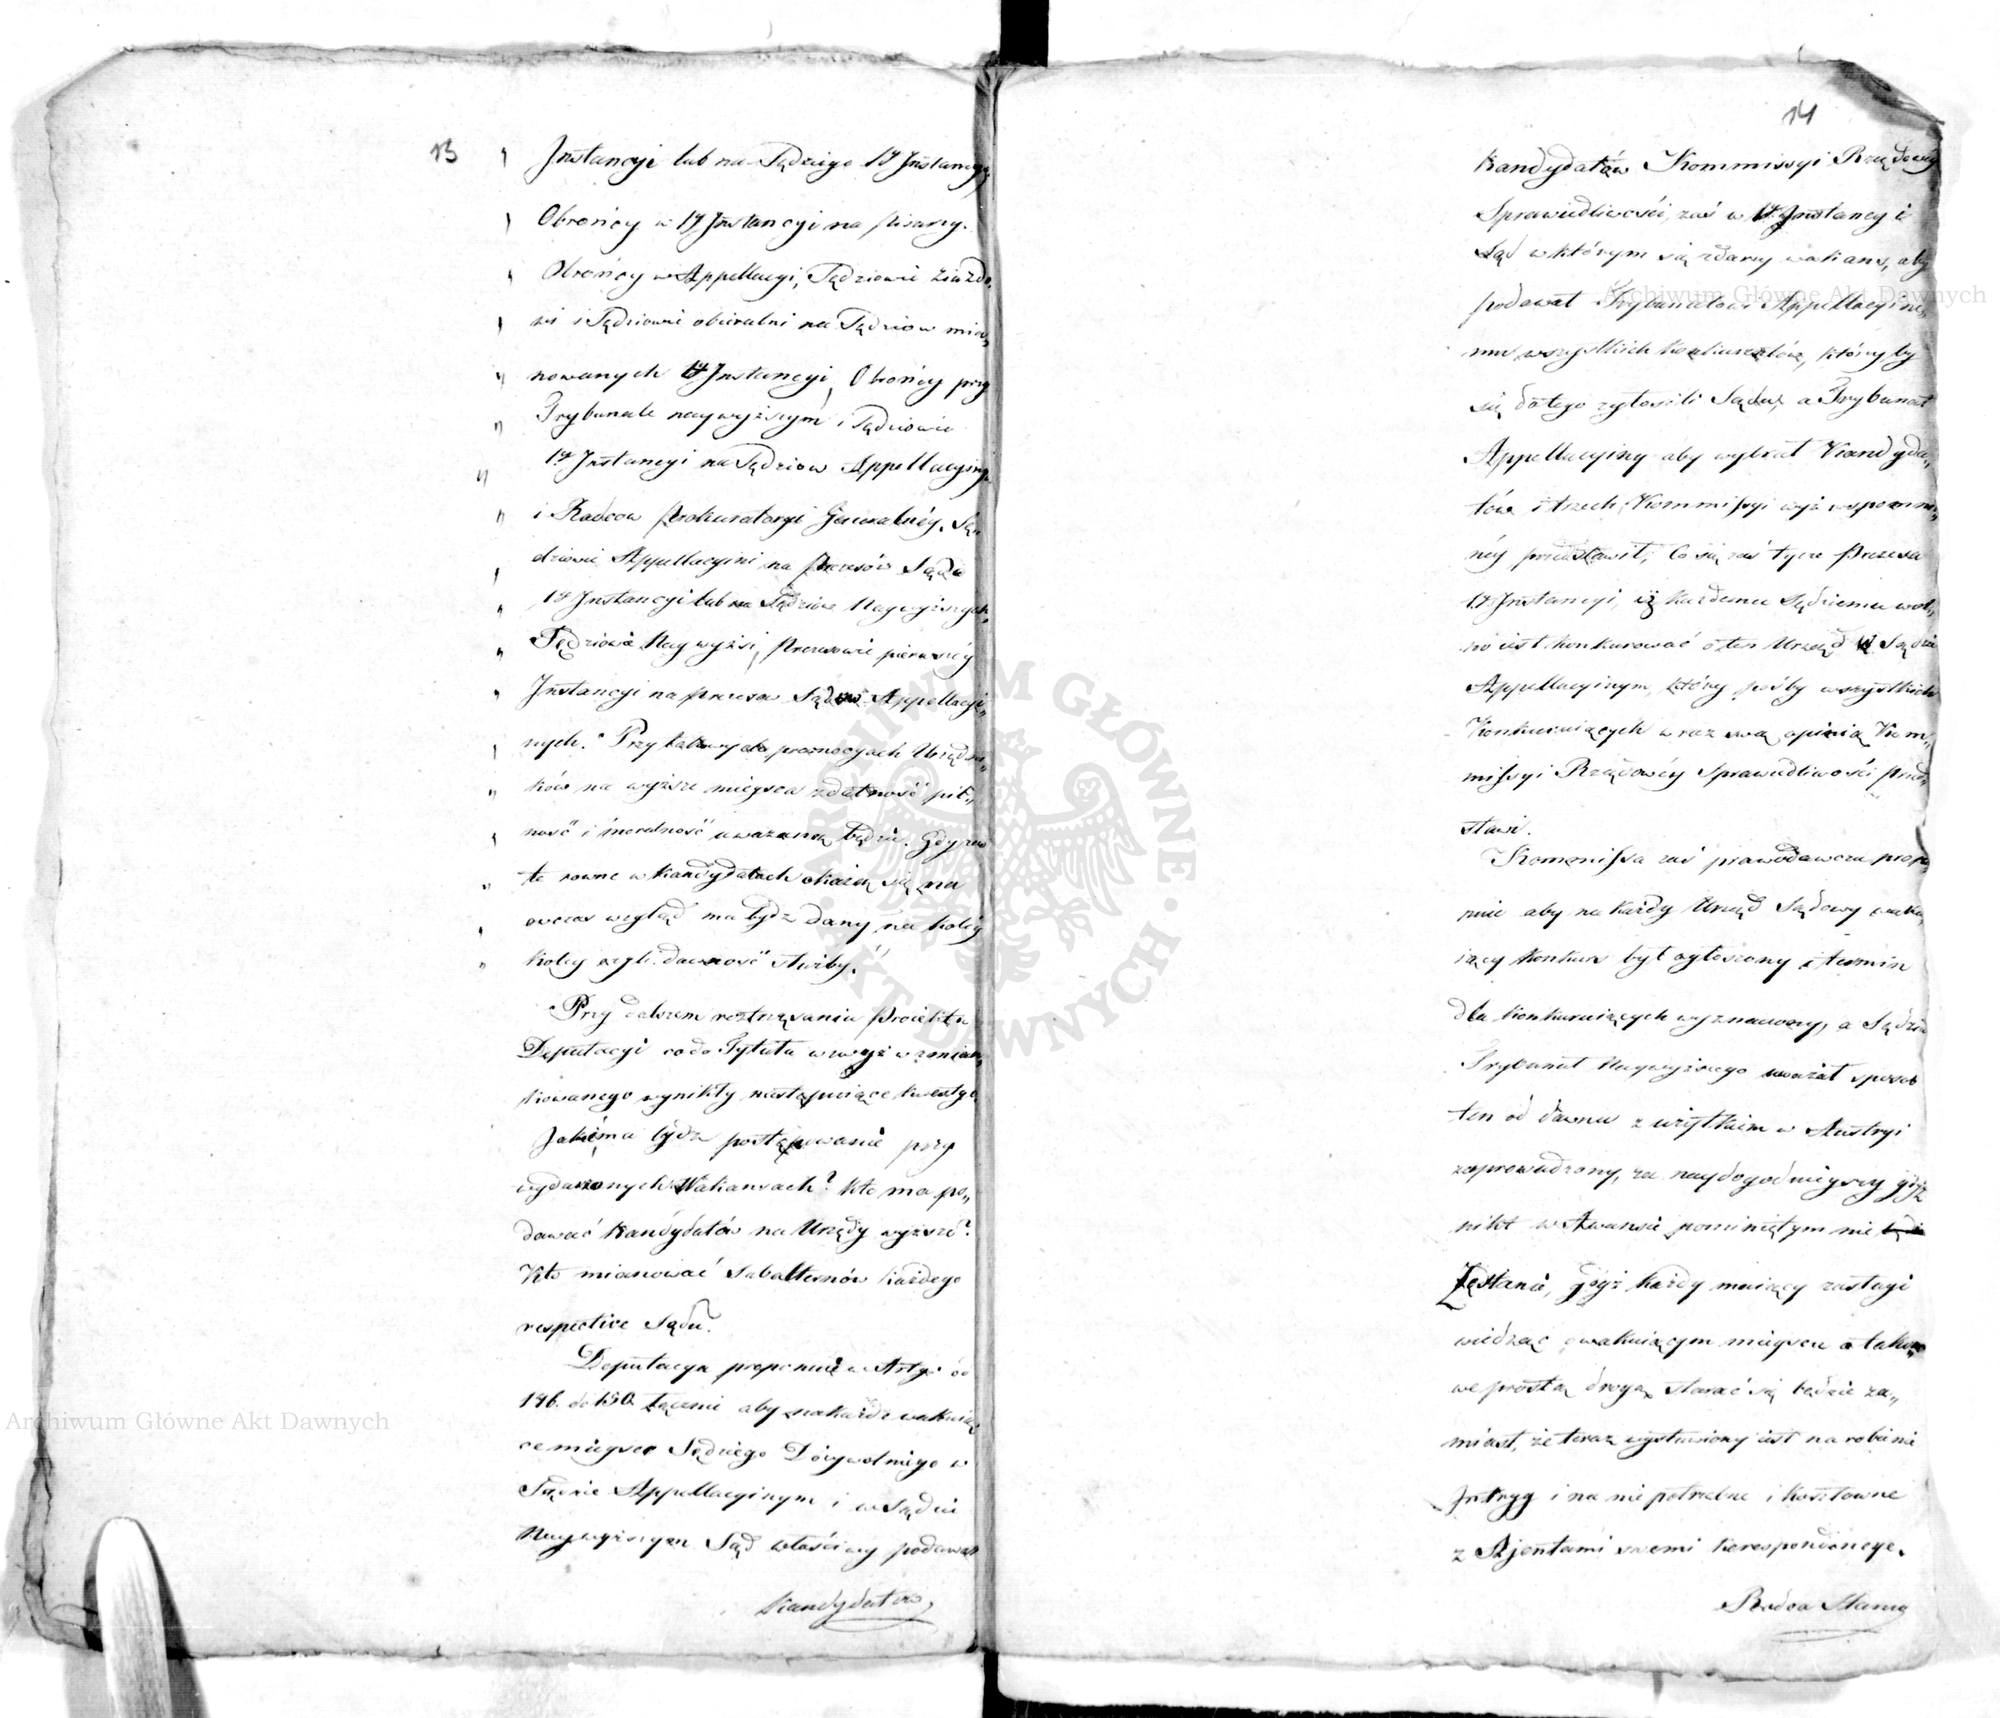 13
„ Instancyi lub na Sędziego 1éy Instancyi,
„ Obrońcy w 1éy Instancyi na Pisarzy.
„ Obrońcy w Appellacyi, Sędziowie Ziazdo„
„ wi i Sędziowie obieralni na Sędziow mia„
„ nowanych 1éy Instancyi, Obrońcy przy
„ Trybunale naywyższym i Sędziowie
„ 1éy Instancyi na Sędziow Appellacyinych
„ i Radcow Prokuratoryi Generalnéy. Sę„
„ dziowie Appellacyini na Prezesów Sądu
„ 1éy Instancyi lub na Sędziow Naywyższych,
„ Sędziowie Naywyżsi, Prezesowie pierwszéy
„ Instancyi na Prezesa Sądow Appellacyi„
„ nych. Przy takowych promocyach Urzędni„
„ ków na wyższe mieysca zdatność pil„
„ ność i moralność uważana będzie. Gdy zaś
„ te rowne w kandydatach okażą się na
„ owczas wzgląd ma bydź dany na koléy
„ koléy czyli dawność służby."
Przy dalszem roztrząsaniu Proiektu
Deputacyi co do Tytułu wzwyż wzmian„
kowanego wynikły następuiące kwestye
Jakie ma bydź postępowanie przy
wydarzonych Wakansach? Kto ma po„
dawać kandydatów na Urzędy wyższe?
Kto mianować Subalternów każdego
respective Sądu?
Deputacya proponuie w Artye od
146. do 150. łącznie aby na każde wakuią
ce mieysce Sędziego Dożywotniego w
Sądzie Appellacyinym i w Sądzie
Naywyższym Sąd właściwy podawał
Kandydatów,
14
Kandydatów Kommissyi Rządowéy
Sprawiedliwości, zaś w 1éy Instancyi
Sąd w którym się zdarzy wakans, aby
podawał Trybunałowi Appellacyine„
mu wszystkich , którzy by
się do tego zgłosili Sądu, a Trybunał
Appellacyiny aby wybrał Kandyda„
tów i trzech Kommissyi wyż wspomnio„
néy przedstawił; Co się zaś tycze Prezesa
1éy Instancyi, iż każdemu Sędziemu wol„
no iest konkurować o ten Urząd w Sądzie
Appellacyinym, który prośby wszystkich
Konkuruiących wraz swą opinią Kom„
missyi Rządowéy Sprawiedliwości przed„
stawi.
Kommissa zaś prawodawcza propo
nuie aby na każdy Urząd Sądowy waku„
iący konkurs był ogłoszony i termin
dla konkuruiących wyznaczony, a Sędzia
Trybunału Naywyższego uważał sposob
ten od dawna z użytkiem w Austryi
zaprowadzony, za naydogodnieyszy gdyż
nikt w Awansie pominiętym nie
Zostanie, gdyż każdy maiący zasługi
wiedząc o wakuiącym mieyscu o takow„
we prostą drogą starać się będzie za„
miast, że teraz wystawiony iest na robienie
Intryg i na niepotrzebne i kosztowne
z Ajentami swemi korespondencye.
Radca Stanu